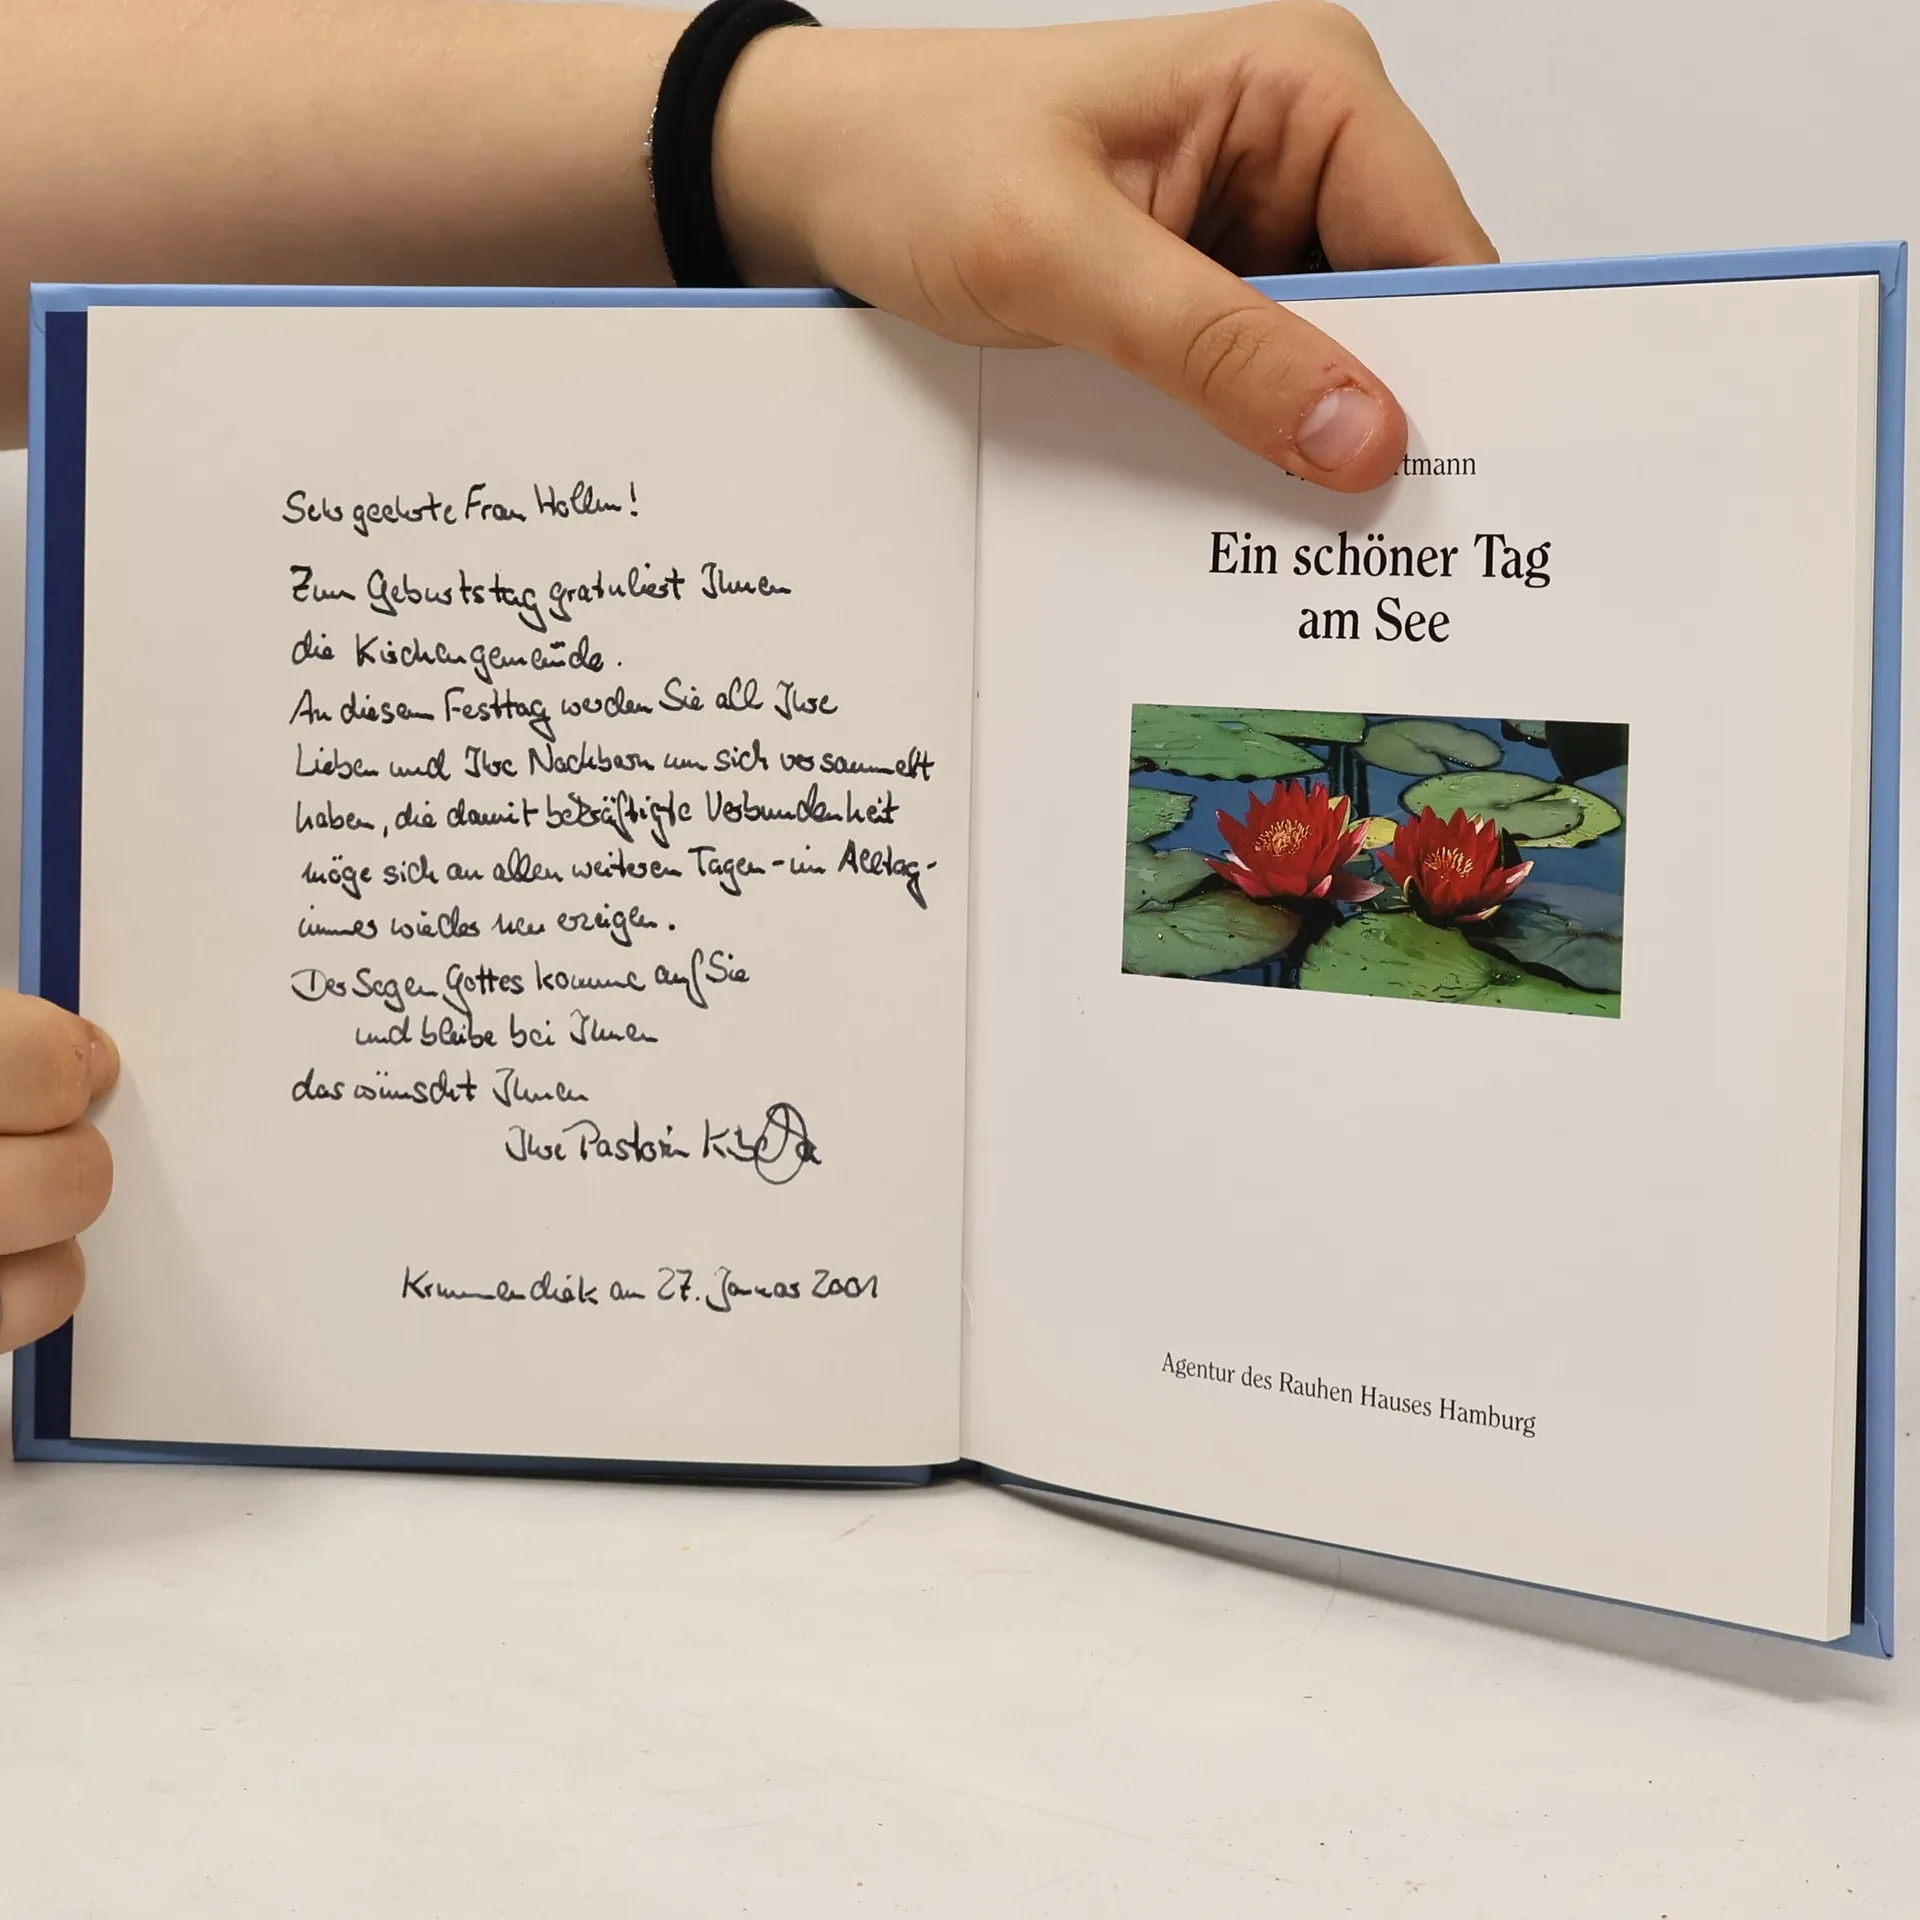 Sehr geehrte Frau Hollm!
Zum Geburtstag gratuliert Ihnen
die Kirchengemeinde.
An diesem Festtag werden Sie all Ihre
Lieben und Ihre Nachbarn um sich versammelt
haben, die damit bekräftigte Verbundenheit
möge sich an allen weiteren Tagen - im Alltag -
immer wieder neu erzeigen.
Der Segen Gottes komme auf Sie
und bleibe bei Ihnen
das wünscht Ihnen
Ihre Pastorin
Krummendiek am 27. Januar 2001
tmann
Ein schöner Tag
am See
Agentur des Rauhen Hauses Hamburg